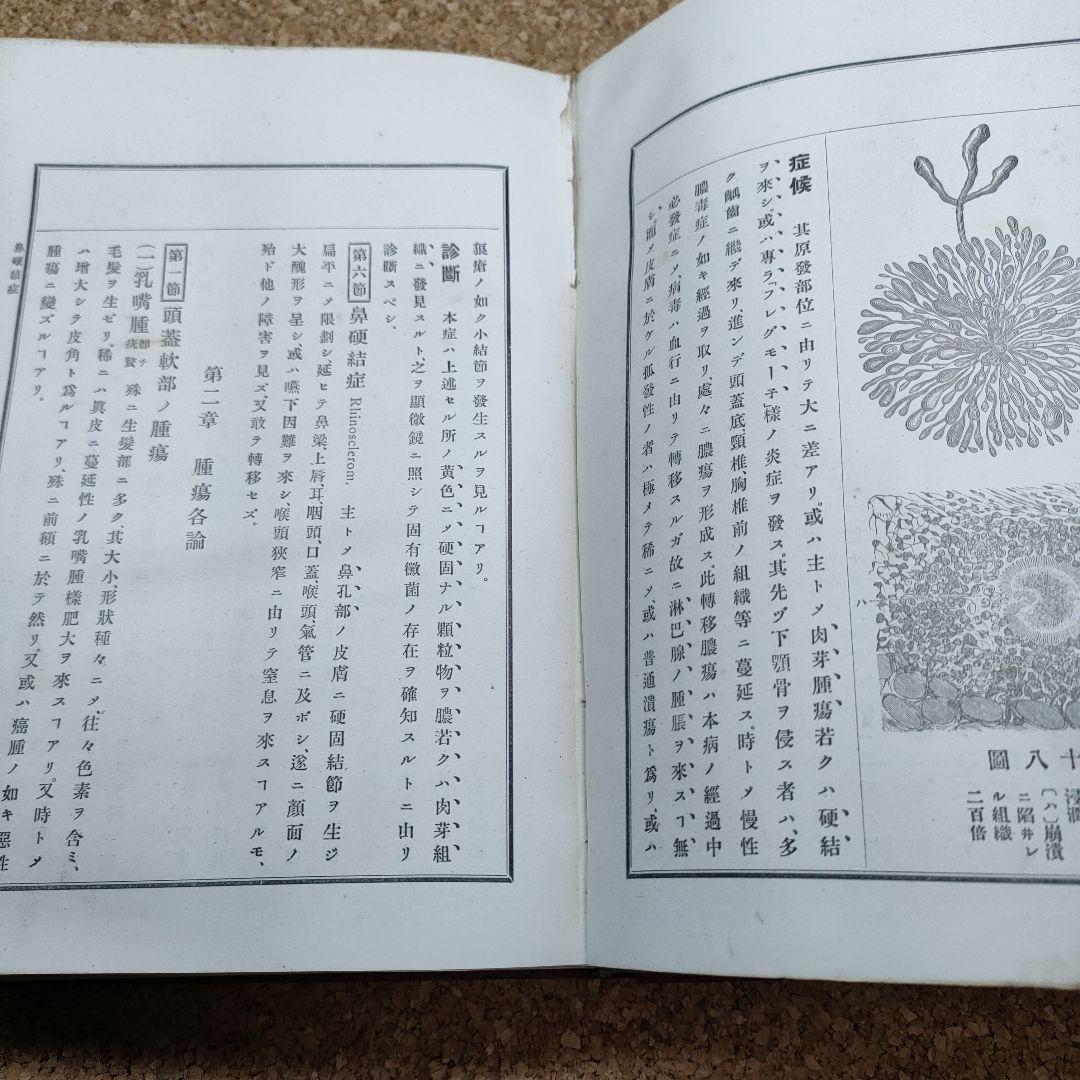 十八圖
浸潤
(ハ)崩潰
ニ陷井レ
ル組織
二百倍
ハ
症候 其原發部位ニ由リテ大ニ差アリ。或ハ主トメ肉芽腫瘍若クハ硬結
ヲ來シ。或ハ專ラ「フレグモーネ」樣ノ炎症ヲ發ス。其先ヅ下顎骨ヲ侵ス者ハ、多
ク齲齒ニ繼デ來リ、進ンデ頭蓋底、頸椎、胸椎前ノ組織等ニ蔓延ス。時トメ慢性
膿毒症ノ如キ經過ヲ取リ、處々ニ膿瘍ヲ形成ス。此轉移膿瘍ハ本病ノ經過中
必發症ニメ、病毒ハ血行ニ由リテ轉移スルガ故ニ、淋巴腺ノ腫脹ヲ來スヿ無
シ。而メ皮膚ニ於ケル孤發性ノ者ハ極メテ稀ニメ、或ハ普通潰瘍ト爲リ、或ハ
狼瘡ノ如ク小結節ヲ發生スルヲ見ルヿアリ。
診斷 本症ハ上述セル所ノ黃色ニメ硬固ナル顆粒物ヲ膿若クハ肉芽組
織ニ發見スルト、之ヲ顯微鏡ニ照シテ固有黴菌ノ存在ヲ確知スルトニ由リ
診斷スベシ。
第六節 鼻硬結症 Rhinosclerom. 主トメ鼻孔部ノ皮膚ニ硬固結節ヲ生ジ
扁平ニメ限劃シ、延ヒテ鼻梁、上唇、耳、咽頭、口蓋、喉頭、氣管ニ及ボシ、遂ニ顏面ノ
大醜形ヲ呈シ、或ハ嚥下困難ヲ來シ、喉頭狹窄ニ由リテ窒息ヲ來スヿアルモ、
殆ド他ノ障害ヲ見ズ。又敢テ轉移セズ。
第二章 腫瘍各論
第一節 頭蓋軟部ノ腫瘍
(一)乳嘴腫 即チ疣贅 殊ニ生髮部ニ多ク、其大小、形狀種々ニメ、往々色素ヲ含ミ、
毛髮ヲ生ゼリ。稀ニハ眞皮ニ蔓延性ノ乳嘴腫樣肥大ヲ來スヿアリ。又時トメ
ハ增大シテ皮角ト爲ルヿアリ、殊ニ前額ニ於テ然リ。又或ハ癌腫ノ如キ惡性
腫瘍ニ變ズルヿアリ。
鼻硬結症